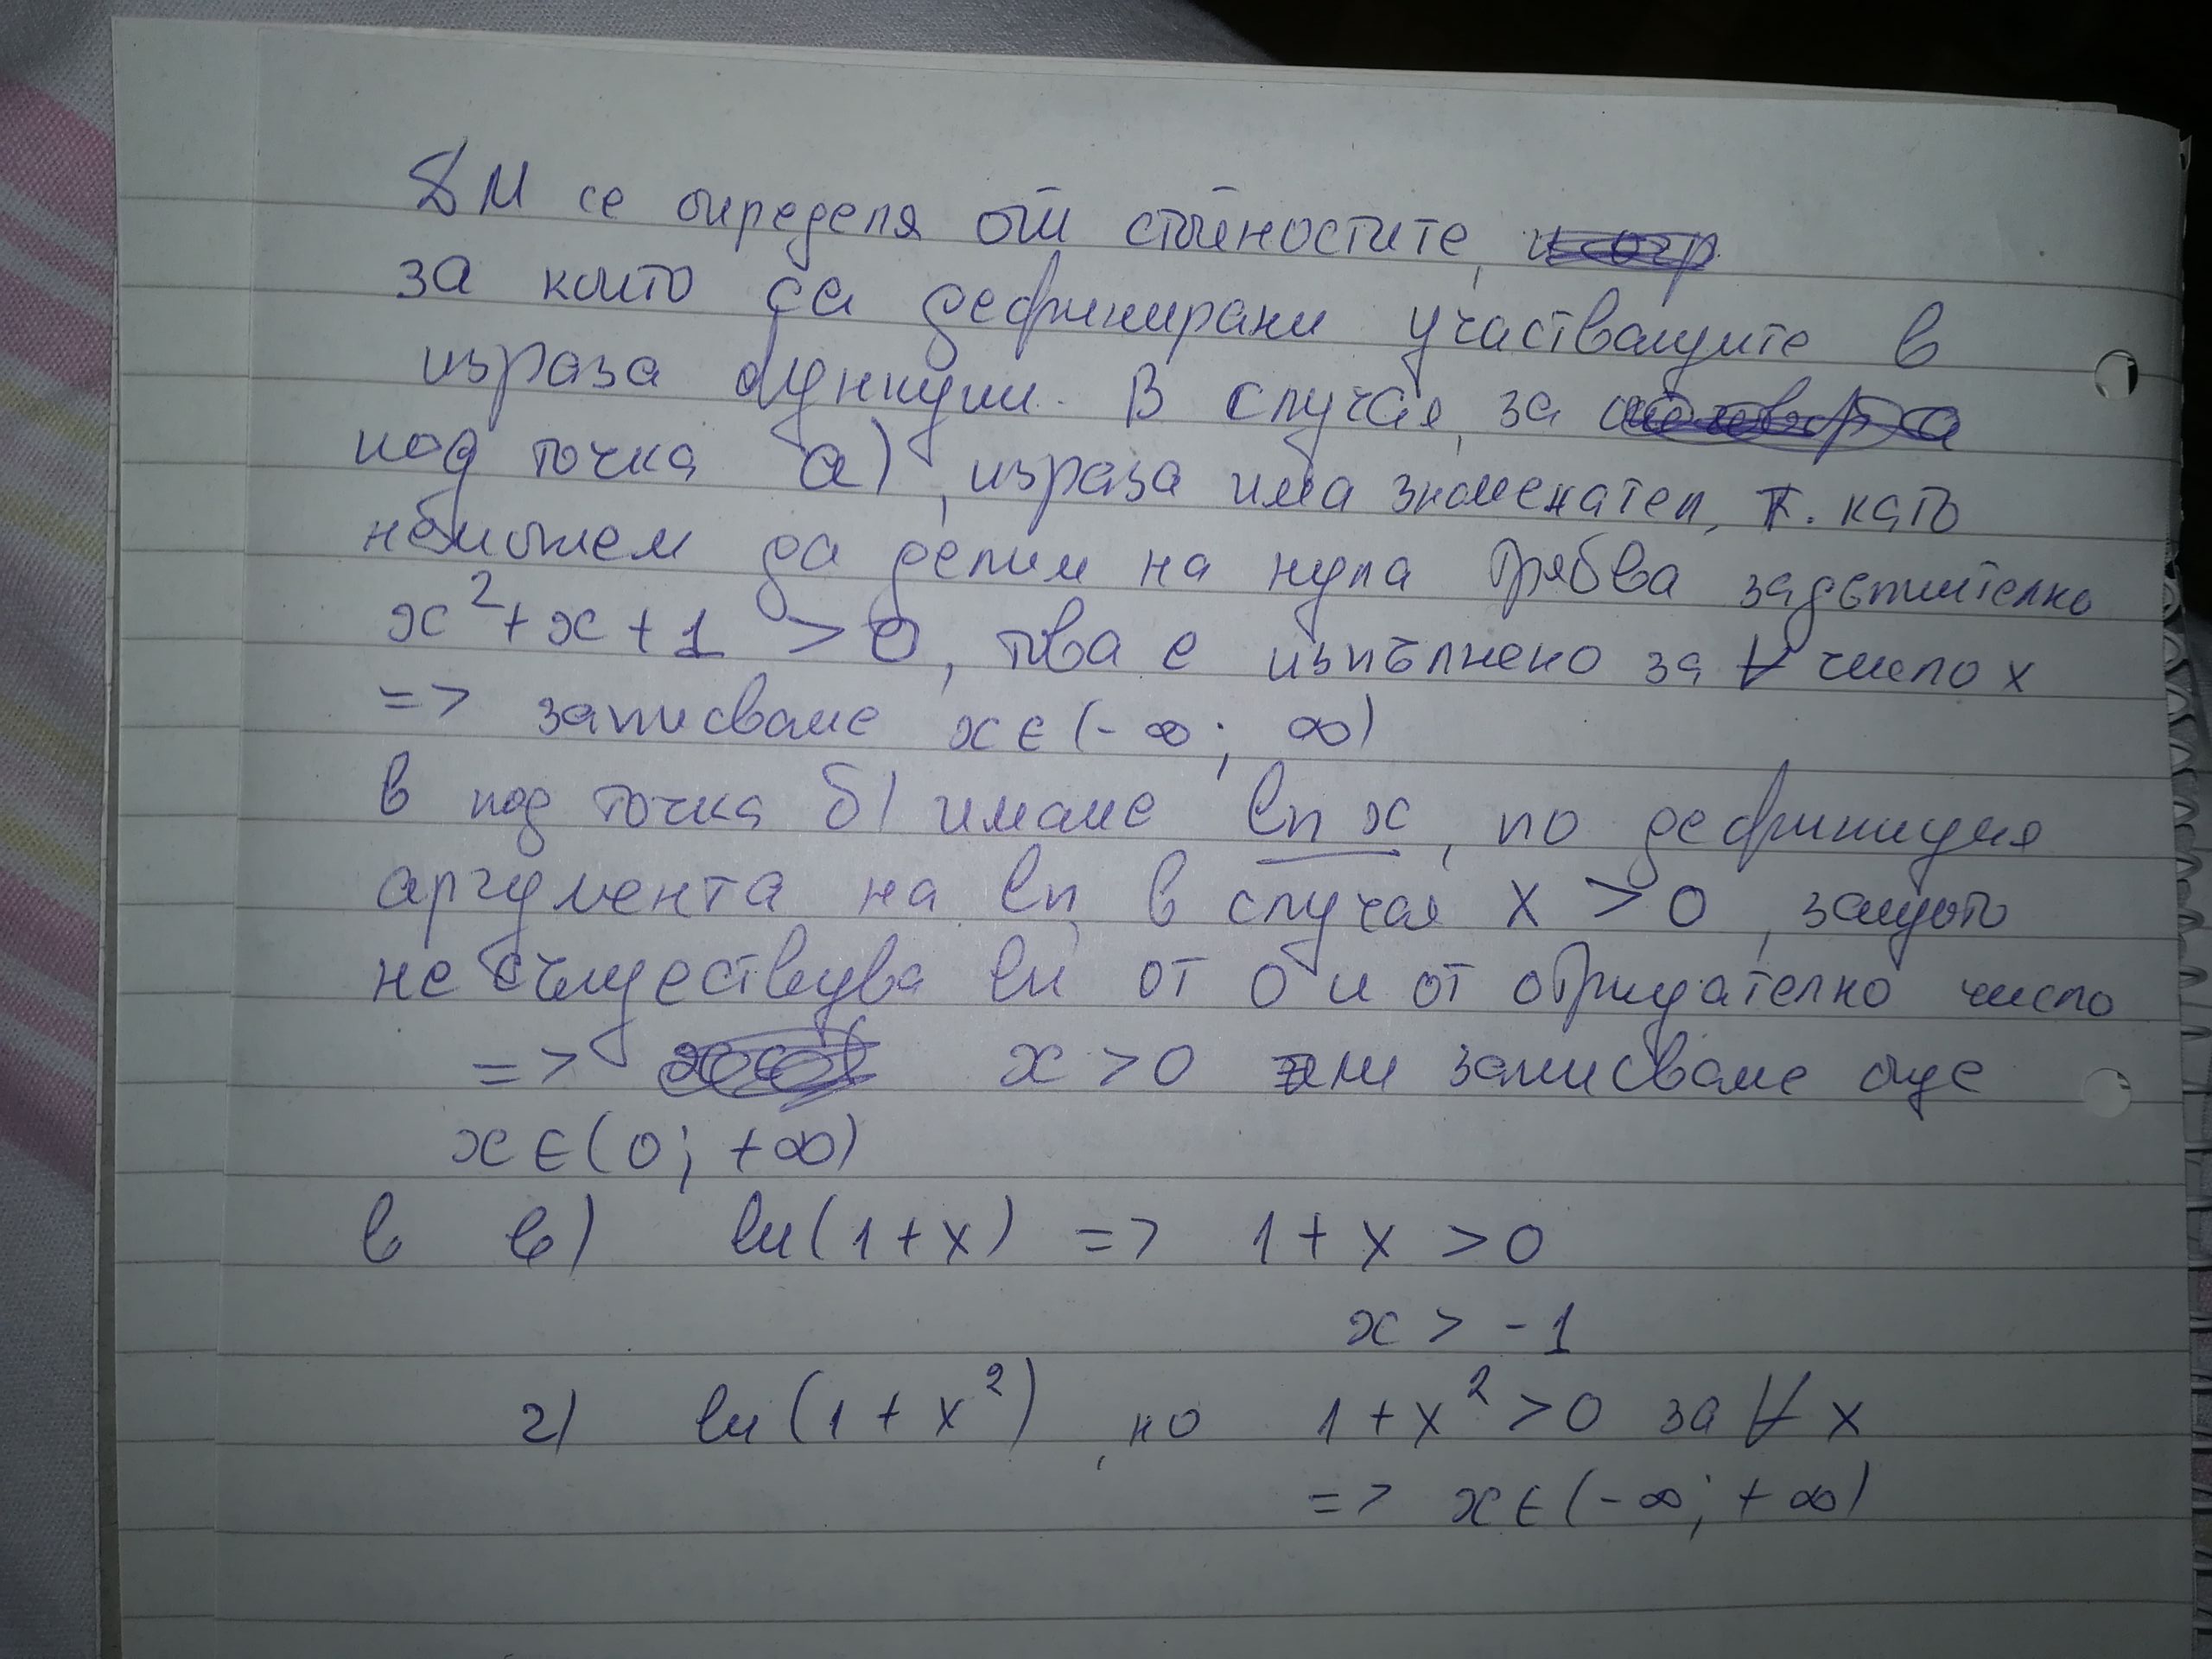 ДМ се определя от стойностите,
за които са дефинирани участващите в
израза функции. В случая, за
под точка а), израза има знаменател, т. като
не можем да делим на нула трябва задължително
x² + x + 1 > 0, това е изпълнено за ∀ число x
=> записваме x ∈ (-∞; ∞)
в под точка б) имаме ln x, по дефиниция
аргумента на ln, в случая x > 0, защото
не съществува ln от 0 и от отрицателно число
=> x > 0 или записваме още
x ∈ (0; +∞)
в в) ln(1+x) => 1 + x > 0
x > -1
г) ln(1 + x²), но 1 + x² > 0 за ∀ x
=> x ∈ (-∞; +∞)